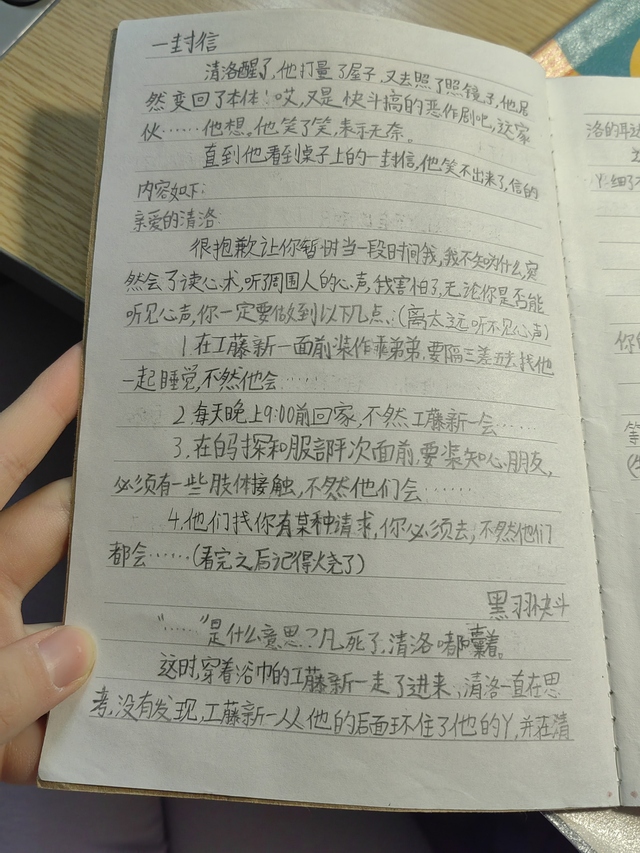 一封信
清洛醒了,他打量了屋子,又去照了照镜子,他居
然变回了本体!哎,又是快斗搞的恶作剧吧,这家
伙……他想。他笑了笑,表示无奈。
直到他看到桌子上的一封信,他笑不出来了,信的
内容如下:
亲爱的清洛
很抱歉让你暂时当一段时间我,我不知为什么,突
然会了读心术,听了周围人的心声,我害怕了,无论你是否能
听见心声,你一定要做到以下几点:(离太远听不见心声)
1.在工藤新一面前装作乖弟弟,要隔三差五去找他
一起睡觉,不然他会……
2.每天晚上9:00前回家,不然工藤新一会……
3.在白马探和服部平次面前,要柒知心朋友,
必须有一些肢体接触,不然他们会……
4.他们找你有某种请求,你必须去,不然他们
都会……(看完之后记得烧了)
黑羽快斗
“……”是什么意思?凡死了,清洛嘟囔着。
这时,穿着浴巾的工藤新一走了进来,清洛一直在思
考,没有发现,工藤新一从他的后面环住了他的Y,并在清
洛的耳边
Y.细了
你的
等